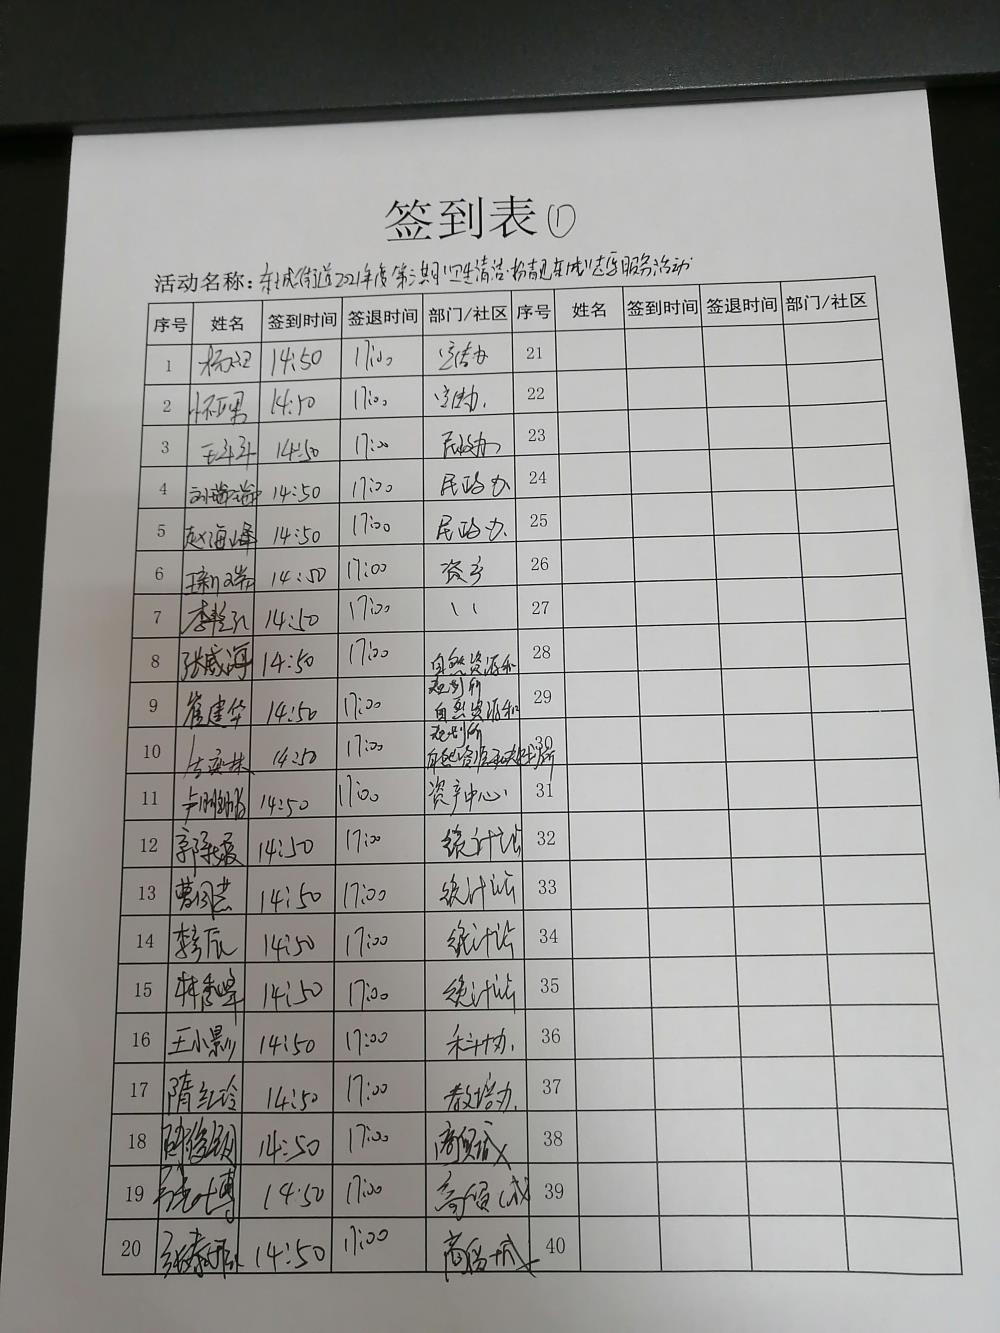 签到表①
活动名称：东城街道2021年度第三期"卫生清洁·扮靓东城"志愿服务活动
序号 姓名 签到时间 签退时间 部门/社区 序号 姓名 签到时间 签退时间 部门/社区
1 14:50 17:00 宣传办 21
2 14:50 17:00 宣传办 22
3 王斗斗 14:50 17:00 民政办 23
4 刘瑞瑞 14:50 17:00 民政办 24
5 赵海峰 14:50 17:00 民政办 25
6 14:50 17:00 资产 26
7 14:50 17:00 〃 27
8 张威海 14:50 17:00 自然资源和规划所 28
9 崔建华 14:50 17:00 自然资源和规划所 29
10 14:50 17:00 自然资源和规划所 30
11 14:50 17:00 资产中心 31
12 14:50 17:00 统计站 32
13 14:50 17:00 统计站 33
14 14:50 17:00 统计站 34
15 林秀峰 14:50 17:00 统计站 35
16 王小影 14:50 17:00 科协 36
17 隋红玲 14:50 17:00 教培办 37
18 14:50 17:00 商贸城 38
19 14:50 17:00 商贸城 39
20 14:50 17:00 商贸城 40